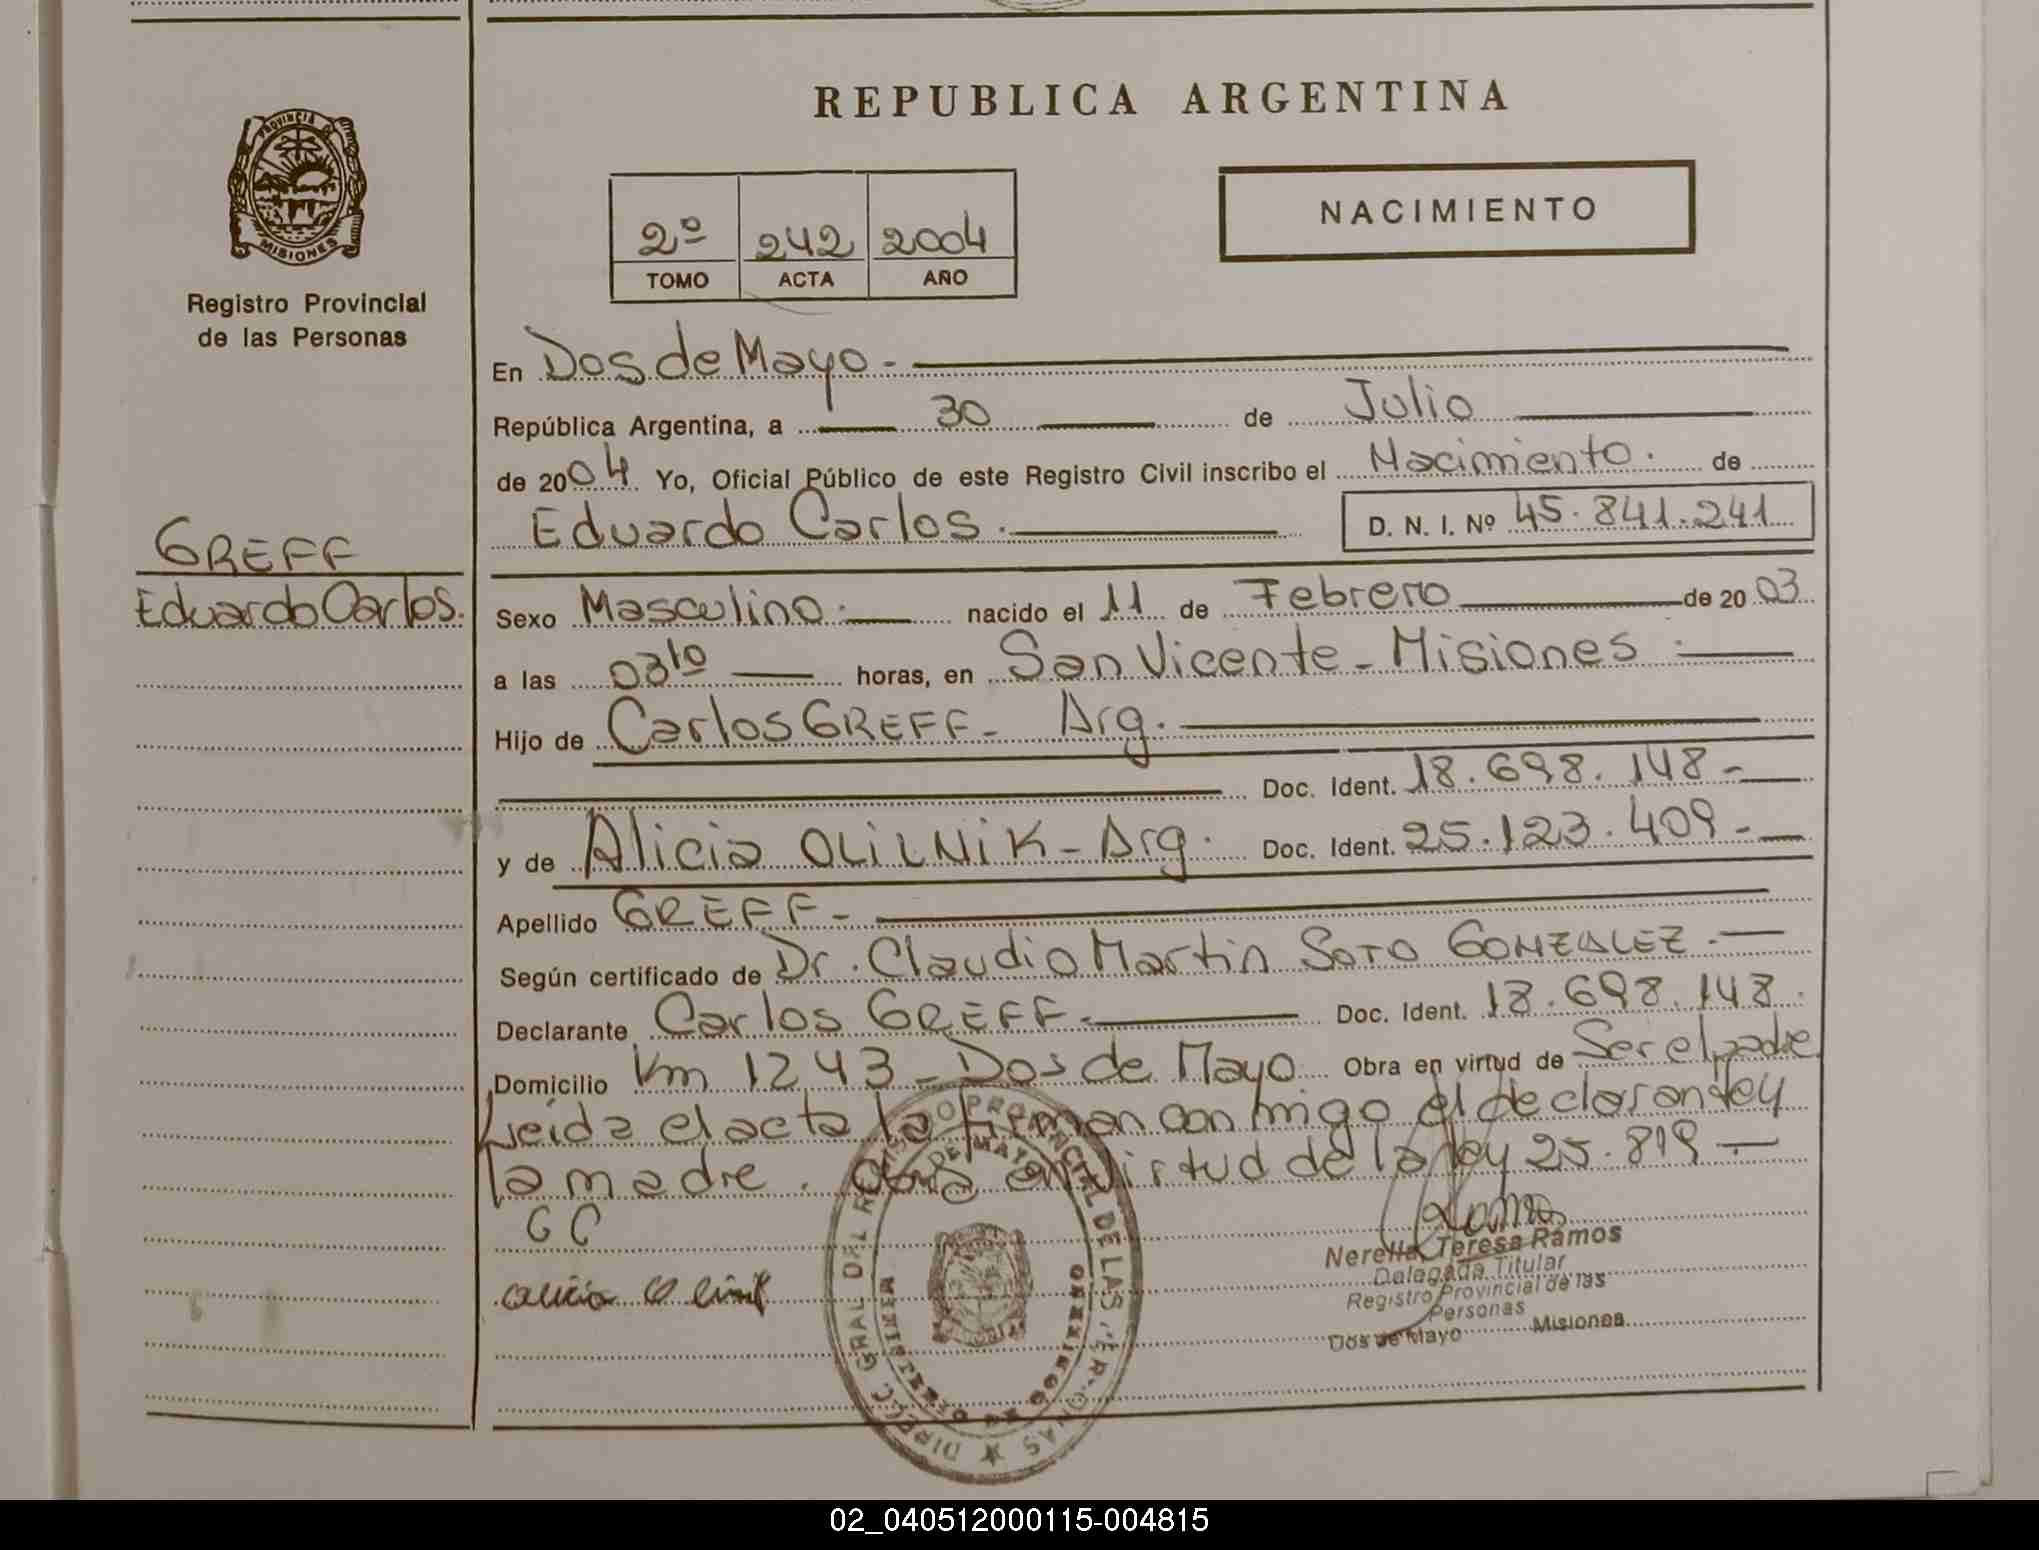 REPUBLICA ARGENTINA
PROVINCIA DE
MISIONES
Registro Provincial
de las Personas
GREFF
Eduardo Carlos.
NACIMIENTO
2º 242 2004
TOMO ACTA AÑO
En Dos de Mayo.-
República Argentina, a 30 de Julio
de 2004 Yo, Oficial Público de este Registro Civil inscribo el Nacimiento. de
Eduardo Carlos. D. N. I. Nº 45.841.241
Sexo Masculino. nacido el 11 de Febrero de 2003
a las 03¹⁰ horas, en San Vicente - Misiones
Hijo de Carlos GREFF - Arg.
Doc. Ident. 18.698.148-
y de Alicia OLILNIK - Arg. Doc. Ident. 25.123.409-
Apellido GREFF-
Según certificado de Dr. Claudio Martin SOTO GONZALEZ.
Declarante Carlos GREFF- Doc. Ident. 18.698.148.
Domicilio Km 1243 - Dos de Mayo Obra en virtud de Ser el padre
Leida el acta la firman conmigo el declarante y
la madre. Obra en virtud de la ley 25.819
G C
Nerella Teresa Ramos
Delegada Titular
Registro Provincial de las
Personas
Dos de Mayo Misiones
DIREC. GRAL DEL REGISTRO PROVINCIAL DE LAS PERSONAS
DE MAYO
02_040512000115-004815